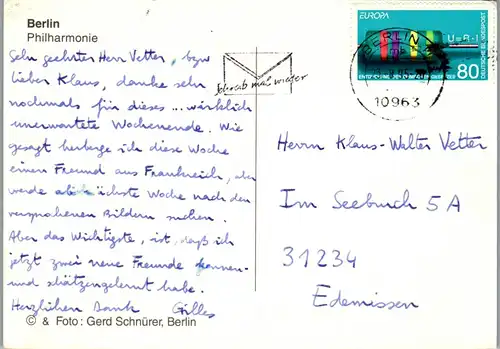 Berlin
Philharmonie
Sehr geehrter Herr Vetter, bzw
lieber Klaus, danke sehr
nochmals für dieses ... wirklich
unerwartete Wochenende. Wie
gesagt herberge ich diese Woche
einen Freund aus Frankreich, aber
werde nächste Woche nach den
versprochenen Bildern suchen.
Aber das Wichtigste, ist, daß ich
jetzt zwei neue Freunde kennen-
und schätzengelernt habe.
Herzlichen Dank Gilles
© & Foto: Gerd Schnürer, Berlin
Schreib mal wieder
EUROPA
U=R·I
DEUTSCHE BUNDESPOST
80
BERLIN
10963
Herrn Klaus-Walter Vetter
Im Seebuch 5A
31234
Edemissen